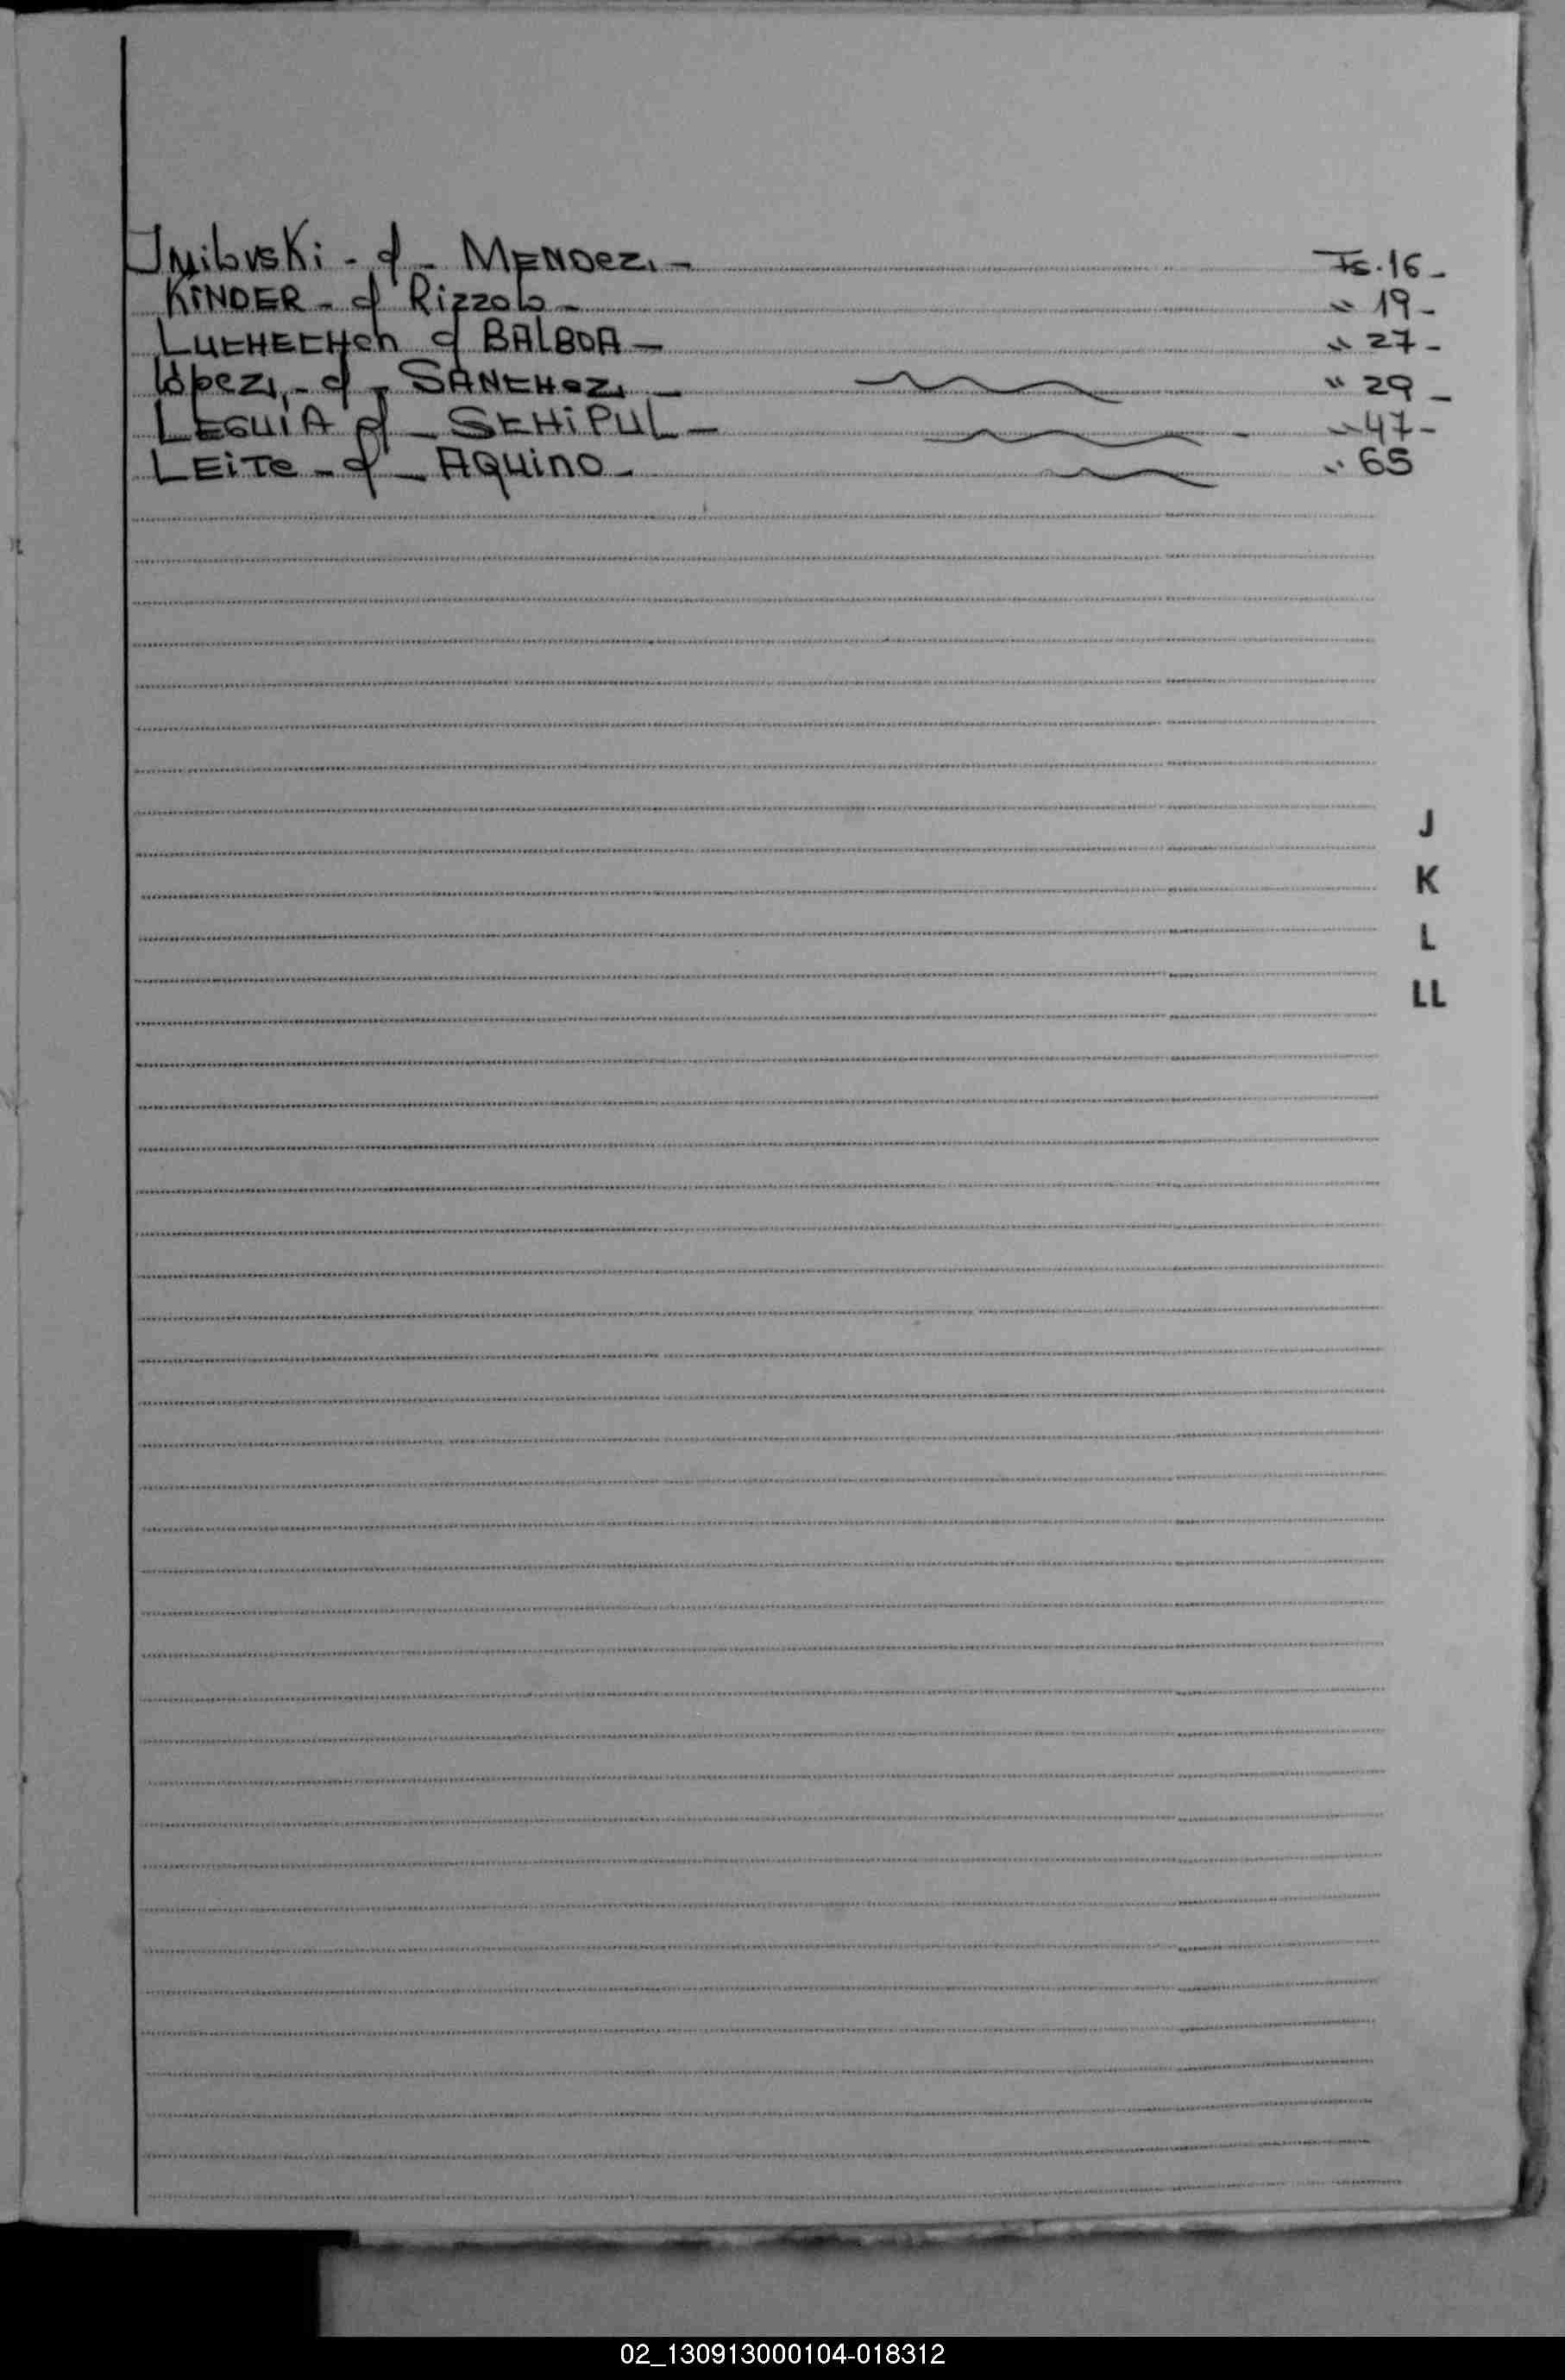 Jmibvski - d - MENDEZ - Fs. 16 -
KINDER - d Rizzolo - " 19 -
LUCHECHEN d BALBOA - " 27 -
López - d - SANCHEZ - " 29 -
LEGUIA d - SCHIPUL - " 47 -
LEITE - d - AQUINO - " 65
J
K
L
LL
02_130913000104-018312